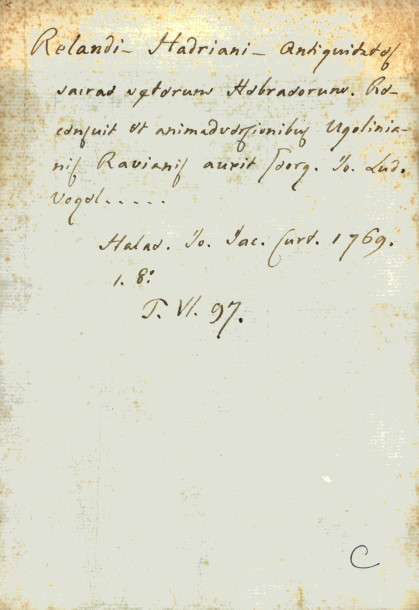 Relandi - Hadriani - Antiquitates
sacrae veterum Hebraeorum. Re-
censuit et animadversionibus Ugolinia-
nis Ravianis auxit Georg. Jo. Lud.
Vogel.....
Halae. Jo. Jac. Curt. 1769.
1. 8º
T. VI. 97.
C